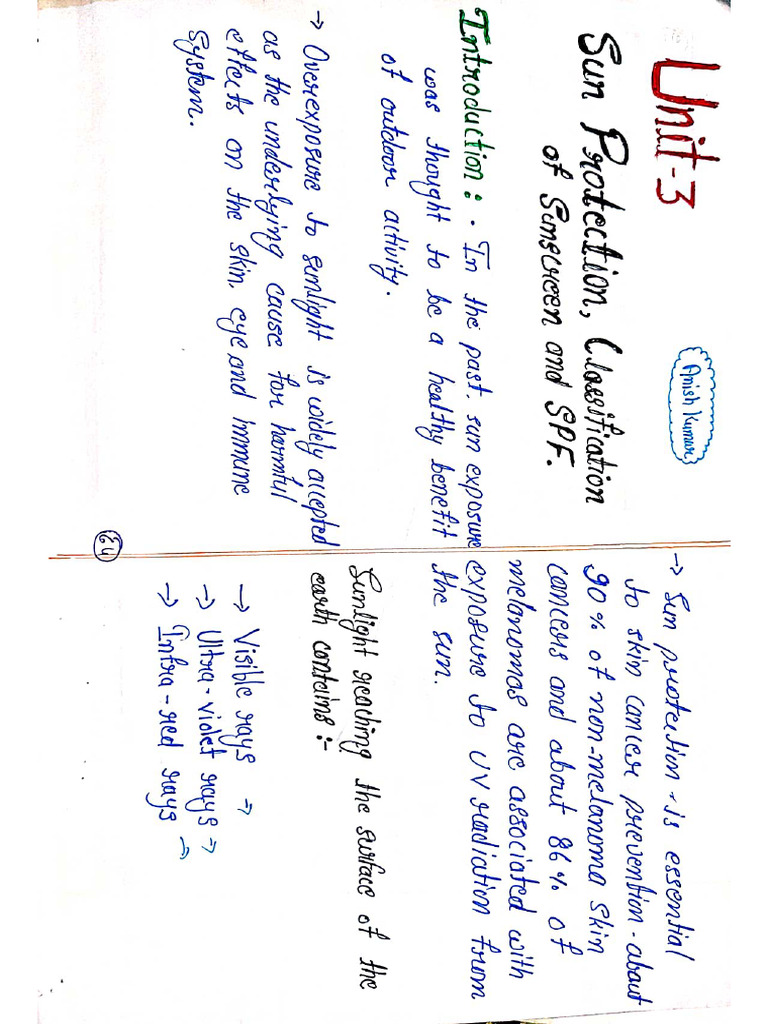 Unit-3
Amish Kumar
Sun Protection, Classification
of Sunscreen and SPF.
Introduction : • In the past, sun exposure
was thought to be a healthy benefit
of outdoor activity.
→ Overexposure to sunlight is widely accepted
as the underlying cause for harmful
effects on the skin, eye and immune
System.
→ Sun protection - is essential
to skin cancer prevention - about
90% of non-melanoma skin
cancers and about 86% of
melanomas are associated with
exposure to UV radiation from
the sun.
Sunlight reaching the surface of the
earth contains :-
→ Visible rays →
→ Ultra-violet rays →
→ Infra-red rays →